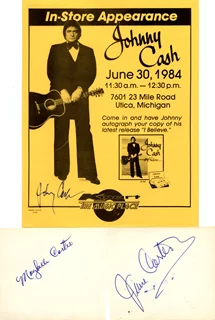 In-Store Appearance
Johnny
Cash
June 30, 1984
11:30 a.m. — 12:30 p.m.
7601 23 Mile Road
Utica, Michigan
Come in and have Johnny
autograph your copy of his
latest release "I Believe."
Johnny
Cash
Johnny Cash
Maybelle Carter
June Carter